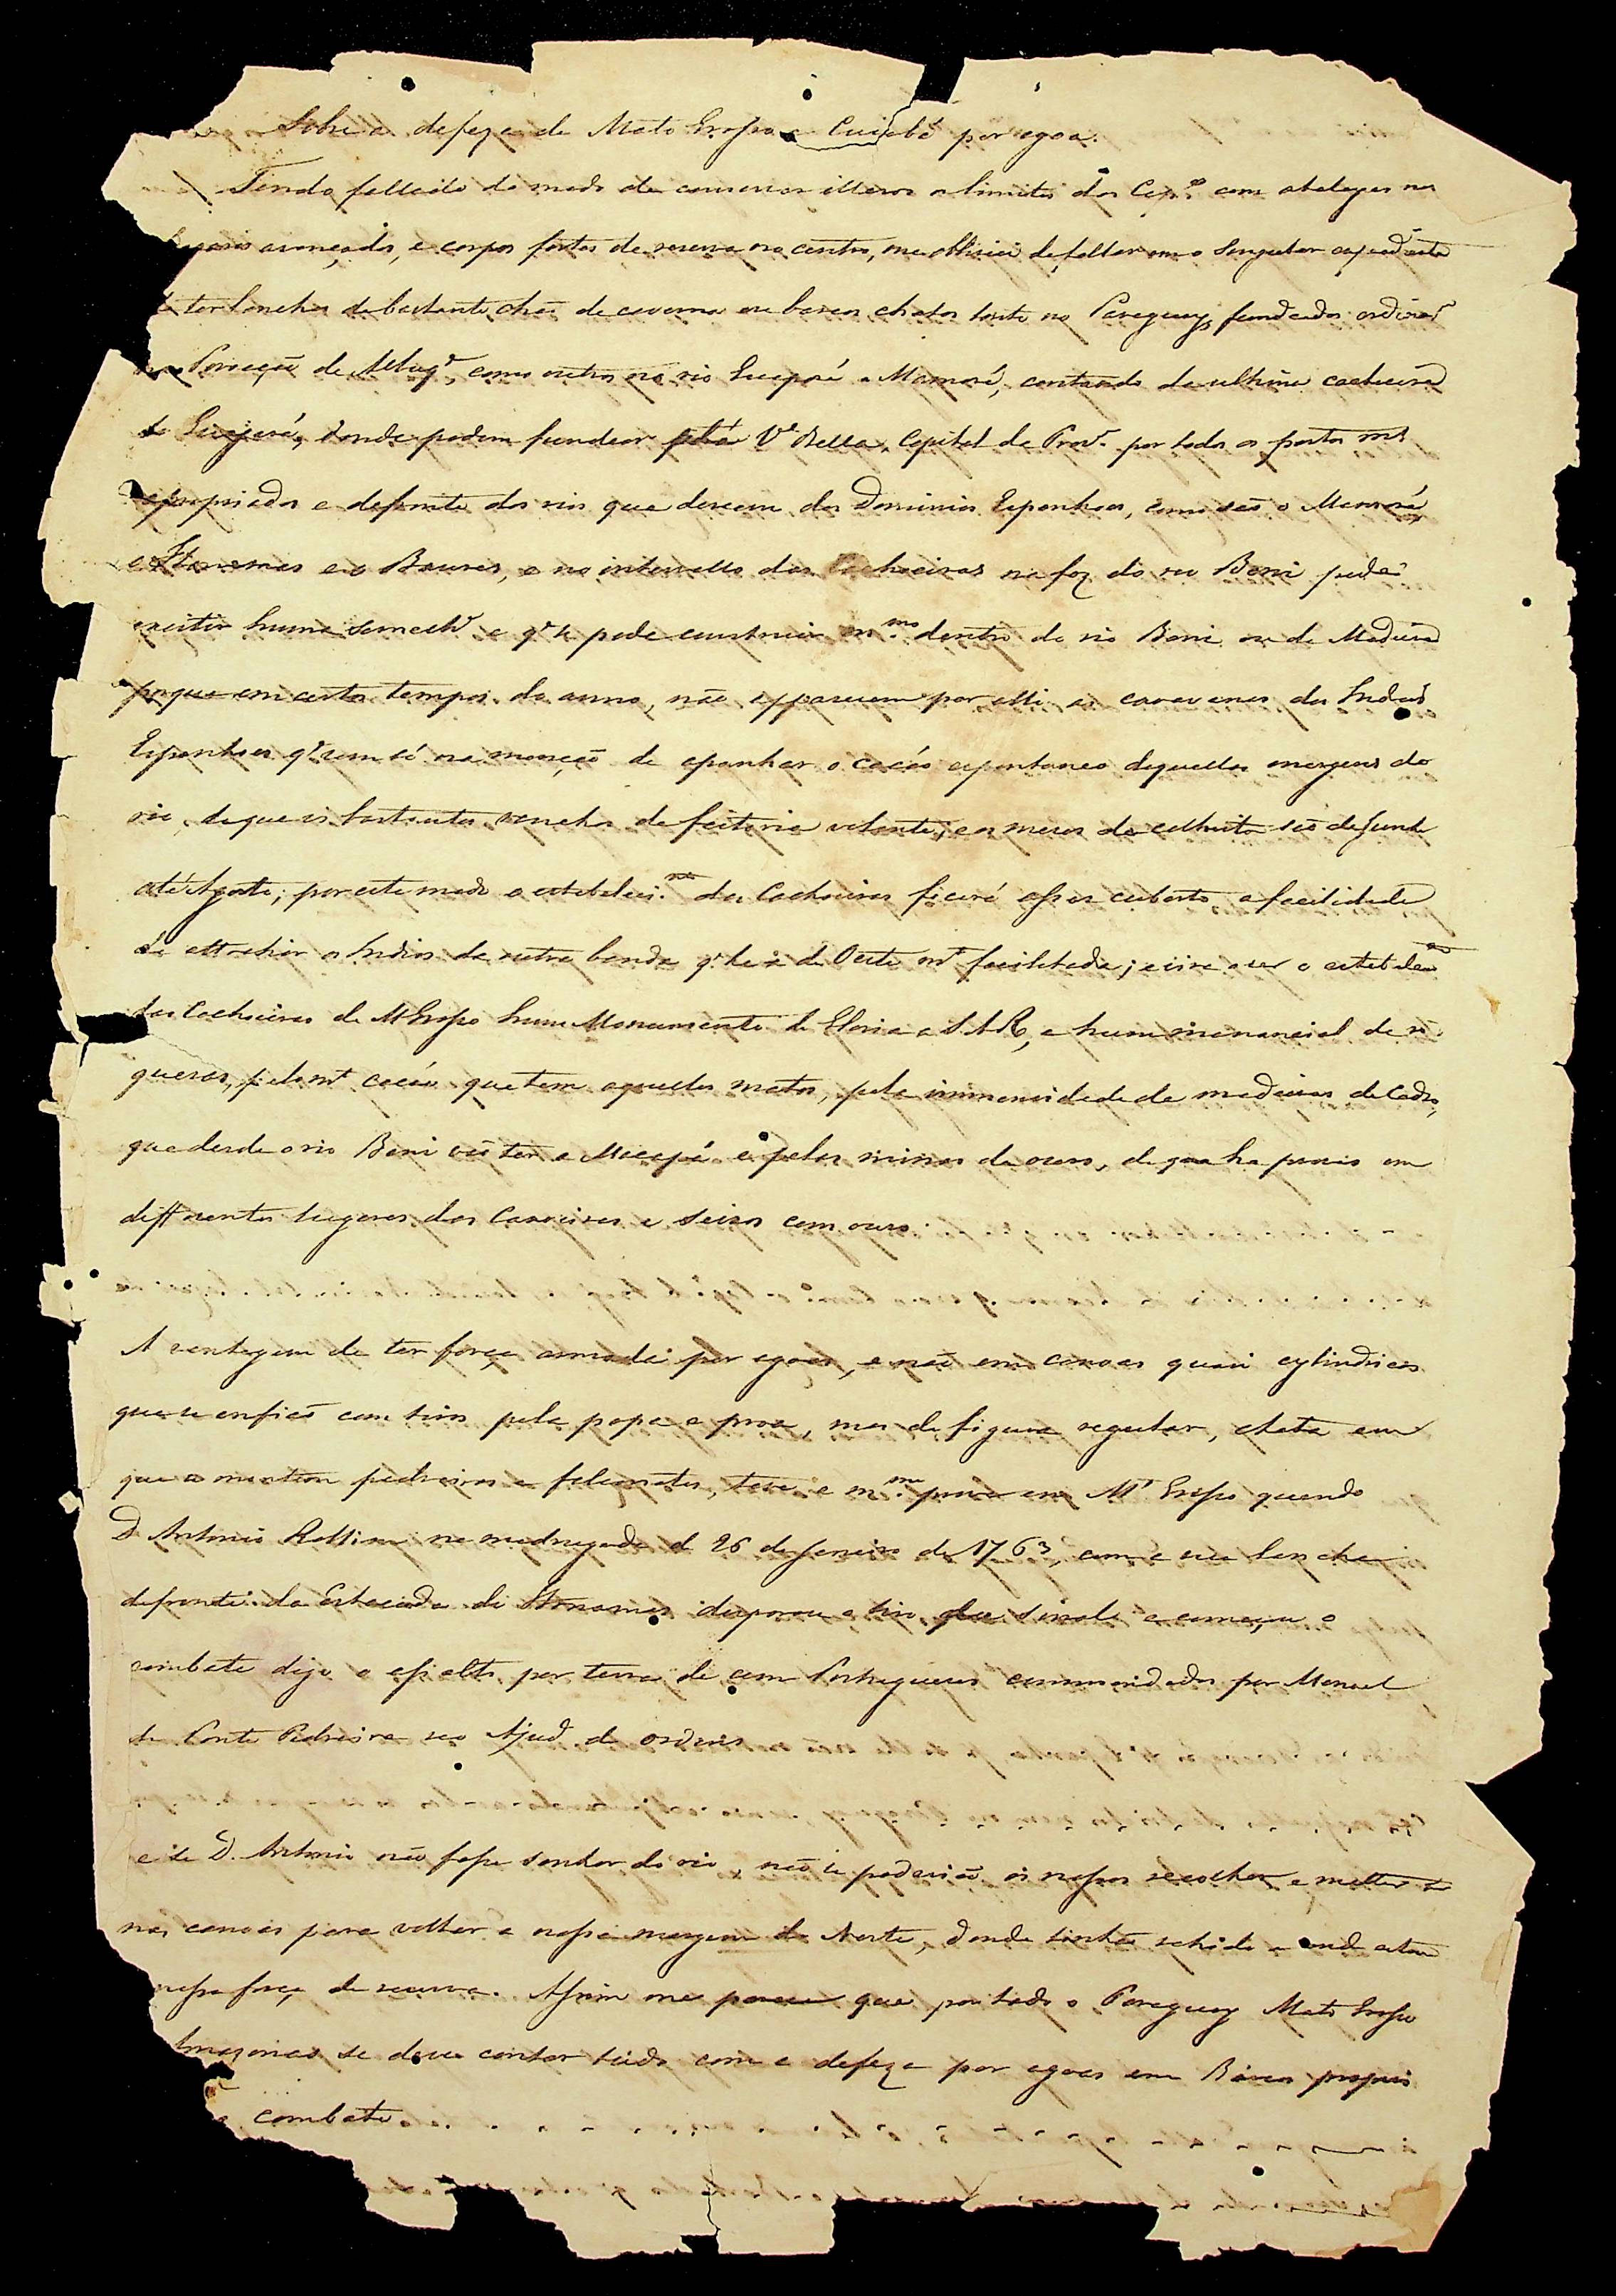 Sobre a defeza de Mato Grosso e Cuiabá por agoa.
Tendo fallado do modo de conservar illesos os limites das Cap.as com atalayas nos
avançados, e corpos fortes de reserva no centro, me esqueci de fallar em o singular expediente
de ter lanchas de bastante chaõ de caverna ou barcos chatos tanto no Paraguay, fundeados
Povoaçaõ de Albuq.e, como outros no rio Guaporé e Mamoré, contando da ultima cachoeira
do Guajará, donde podem fundear até V.a Bella, Capital da Prov.a por todos os portos m.s
apropriados e defronte dos rios que descem dos Dominios Espanhoes, como saõ o Mamoré,
o Itonamas e o Baures, e no intervallo das Cachoeiras na foz do rio Beni pode
existir huma semelh.e e q.e se pode construir m.mo dentro do rio Beni ou do Madeira
porque em certos tempos do anno, naõ apparecem por alli as caravanas dos Indios
Espanhoes q.e vem só na monçaõ de apanhar o cacáo espontaneo daquellas margens do
rio, de que ha bastantes ranchos de feitoria volante, e os mezes da colheita saõ de Junho
até Agosto; por este modo o estabeleci.mto das Cachoeiras ficará assas cuberto, a facilidade
de attrahir os Indios da outra banda q.e he a de Oeste m.to facilitada; e vira a ser o estabelec.mto
das Cachoeiras de M Grosso hum Monumento de Gloria a S.A.R., e hum manancial de ri-
quezas, pelo m.to cacáo que tem aquelles matos, pela immensidade de madeiras de Cedro,
que desde o rio Beni vaõ ter a Macapá e pelas minas de ouro, de que ha provas em
differentes lugares das Caxoeiras e seixos com ouro.
A vantagem de ter força armada por agoa, e naõ em canoas quasi cylindricas
que se enfiaõ com tiros pela popa e proa, mas de figura regular, chata em
que se montem pedreiros e falconetes, teve a m.ma prova em M.to Grosso quando
D Antonio Rollim na madrugada de 26 de Janeiro de 1763, com a sua lancha
defronte da Estacada de Itonamas disparou o tiro, deo sinal e começou o
combate digo o assalto por terra de cem Portuguezes commandados por Manoel
da Ponte Pedreira seo Ajud.e de ordens
e se D. Antonio naõ fosse senhor do rio, naõ se poderiaõ os nossos recolher e metter se
nas canoas para voltar a nossa margem do Norte, donde tinhaõ sahido e onde estava
nossa força de reserva. Assim me parece que por todo o Paraguay Mato Grosso
Amazonas se deve contar tudo com a defeza por agoas em Barcos proprios
combate.